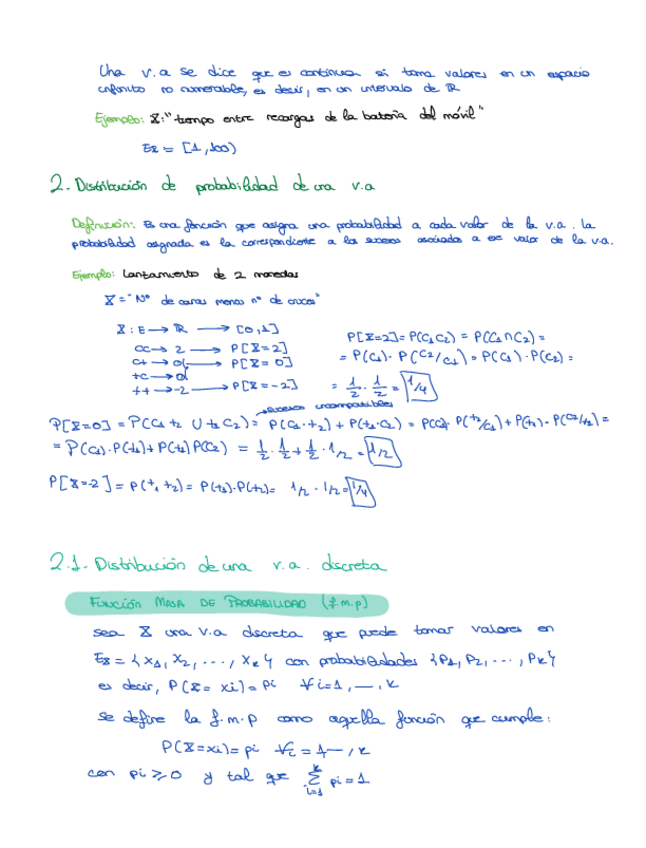 Una v.a se dice que es continua si toma valores en un espacio
infinito no numerable, es decir, en un intervalo de ℝ
Ejemplo: X: "tiempo entre recargas de la batería del móvil"
Ex = [1, 100)
2.- Distribución de probabilidad de una v.a
Definición: Es una función que asigna una probabilidad a cada valor de la v.a. La
probabilidad asignada es la correspondiente a los sucesos asociados a ese valor de la v.a.
Ejemplo: Lanzamiento de 2 monedas
X = "Nº de caras menos nº de cruces"
X: E → ℝ → [0,1]
cc → 2 → P[X=2]
c+ → 0 → P[X=0]
+c → 0
++ → -2 → P[X=-2]
P[X=2] = P(C₁C₂) = P(C₁∩C₂) =
= P(C₁) · P(C₂/C₁) = P(C₁) · P(C₂) =
= 1/2 · 1/2 = 1/4
sucesos incompatibles
P[X=0] = P(C₁+₂ ∪ +₁C₂) = P(C₁·+₂) + P(+₁·C₂) = P(C₁) P(+₂/C₁) + P(+₁) · P(C₂/+₁) =
= P(C₁)·P(+₂) + P(+₁) P(C₂) = 1/2 · 1/2 + 1/2 · 1/2 = 1/2
P[X=-2] = P(+₁+₂) = P(+₁)·P(+₂) = 1/2 · 1/2 = 1/4
2.1.- Distribución de una v.a. discreta
FUNCIÓN MASA DE PROBABILIDAD (f.m.p)
sea X una v.a discreta que puede tomar valores en
Ex = {x₁, x₂, ..., xκ} con probabilidades {P₁, P₂, ..., Pκ}
es decir, P(X= xi) = pi ∀i=1, —, κ
se define la f.m.p como aquella función que cumple:
P(X=xi) = pi ∀i = 1 —, κ
con pi ≥ 0 y tal que Σ_{i=1}^{κ} pi = 1